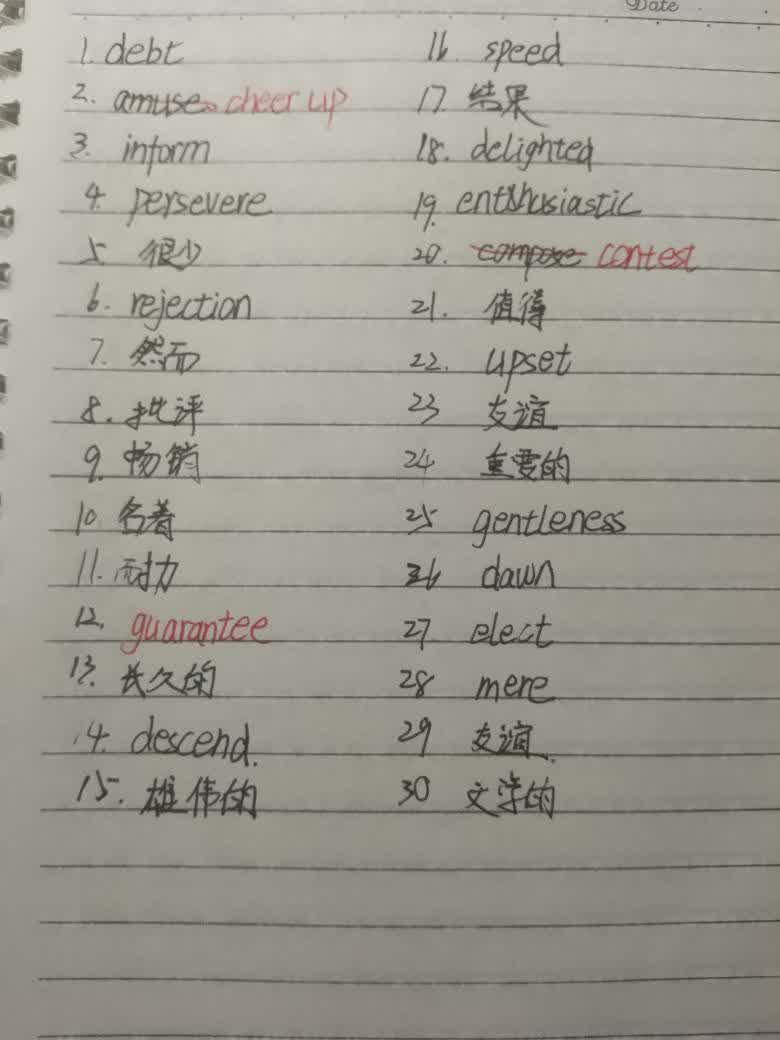 Date
1. debt
2. amuse. cheer up
3. inform
4. persevere
5. 很少
6. rejection
7. 然而
8. 批评
9. 畅销
10. 名著
11. 耐力
12. guarantee
13. 长久的
14. descend.
15. 雄伟的
16. speed
17. 结果
18. delighted
19. enthusiastic
20. compose contest
21. 值得
22. upset
23 友谊
24 重要的
25 gentleness
26 dawn
27 elect
28 mere
29 友谊.
30 文学的